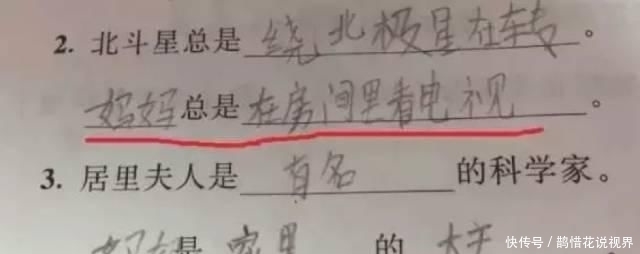 2. 北斗星总是绕北极星在转。
妈妈总是在房间里看电视。
3. 居里夫人是有名的科学家。
家里的
快传号 / 鹊惜花说视界